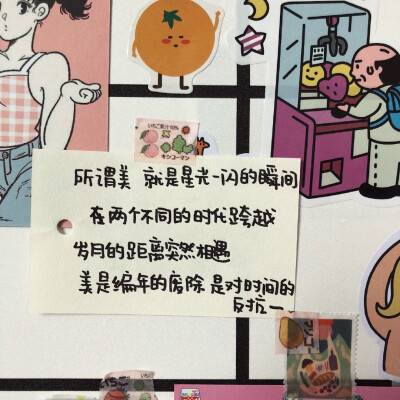 いちご果汁100%
キシコーマン
所谓美 就是星光一闪的瞬间
在两个不同的时代跨越
岁月的距离突然相遇
美是编年的废除 是对时间的
反抗一.
いちご
SNOOPY